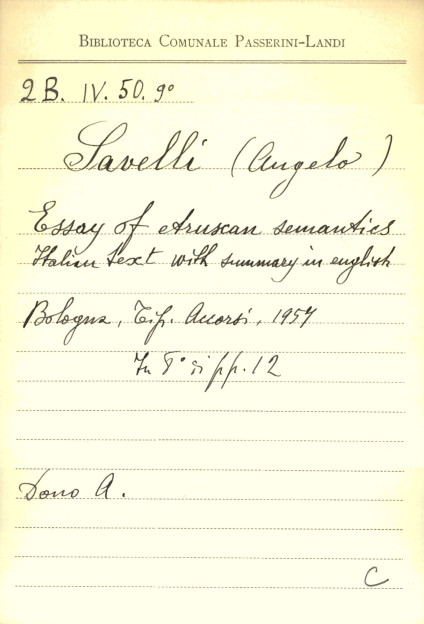 BIBLIOTECA COMUNALE PASSERINI-LANDI
2B. IV. 50. 9°
Savelli (Angelo)
Essay of etruscan semantics
Italian text with summary in english
Bologna, Tip. Accorsi, 1957
In 8° di pp. 12
Dono A.
C